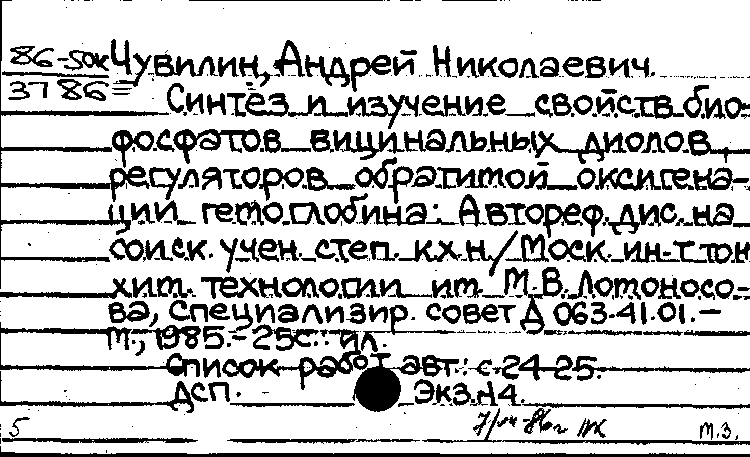 86-50к Чувилин, Андрей Николаевич.
3786=
Синтез и изучение свойств био-
фосфатов вицинальных диолов,
регуляторов обратимой оксигена-
ции гемоглобина: Автореф. дис. на
соиск. учен. степ. к.х.н./Моск. ин-т тон
хим. технологии им. М.В. Ломоносо-
ва, Специализир. совет Д 063.41.01.—
М., 1985.- 25с.: ил.
Список работ авт.: с. 24-25.
Дсп. Экз. н4.
5 М.З.